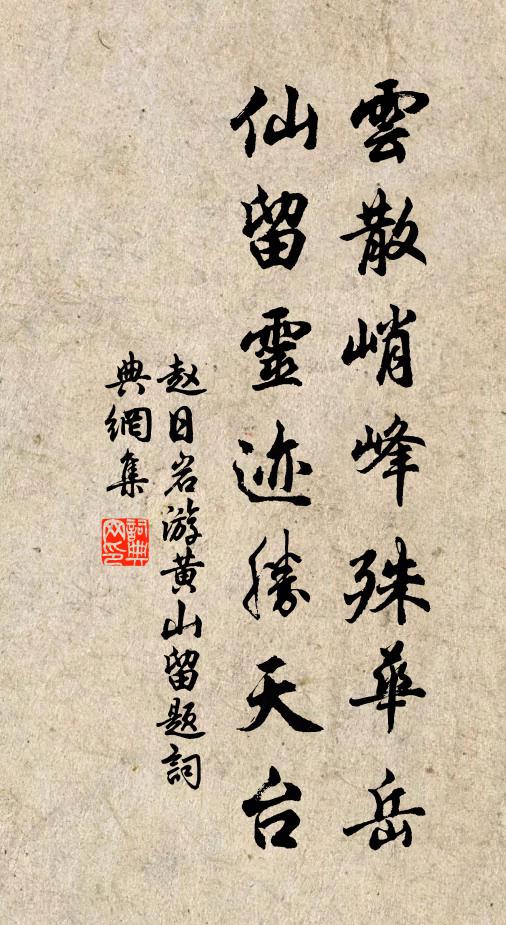 雲散峭峰殊華岳
仙留靈迹勝天台
赵日岩游黄山留题詞
典網集
詞典网印